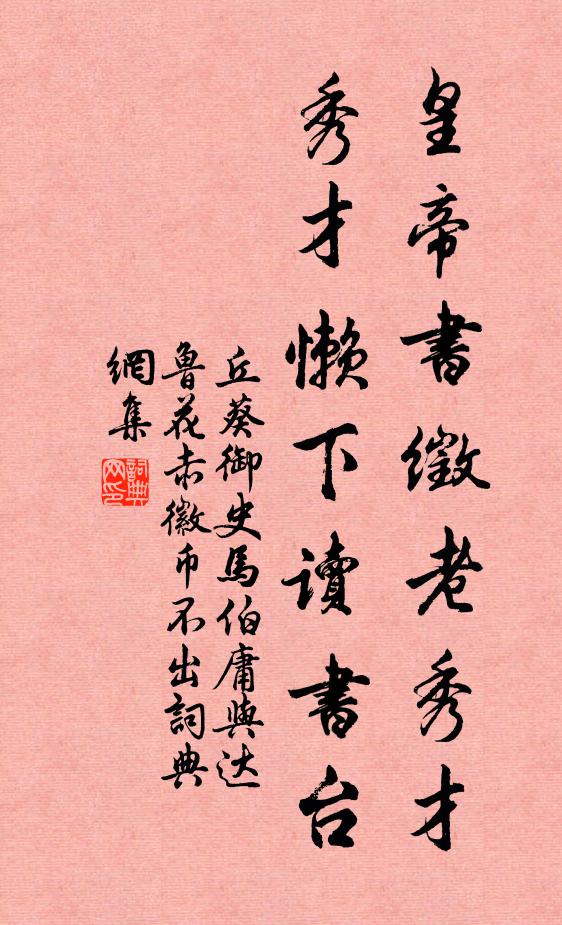 皇帝書徵老秀才
秀才懶下讀書台
丘葵御史馬伯庸與达
魯花赤徽币不出詞典
網集
詞典网印